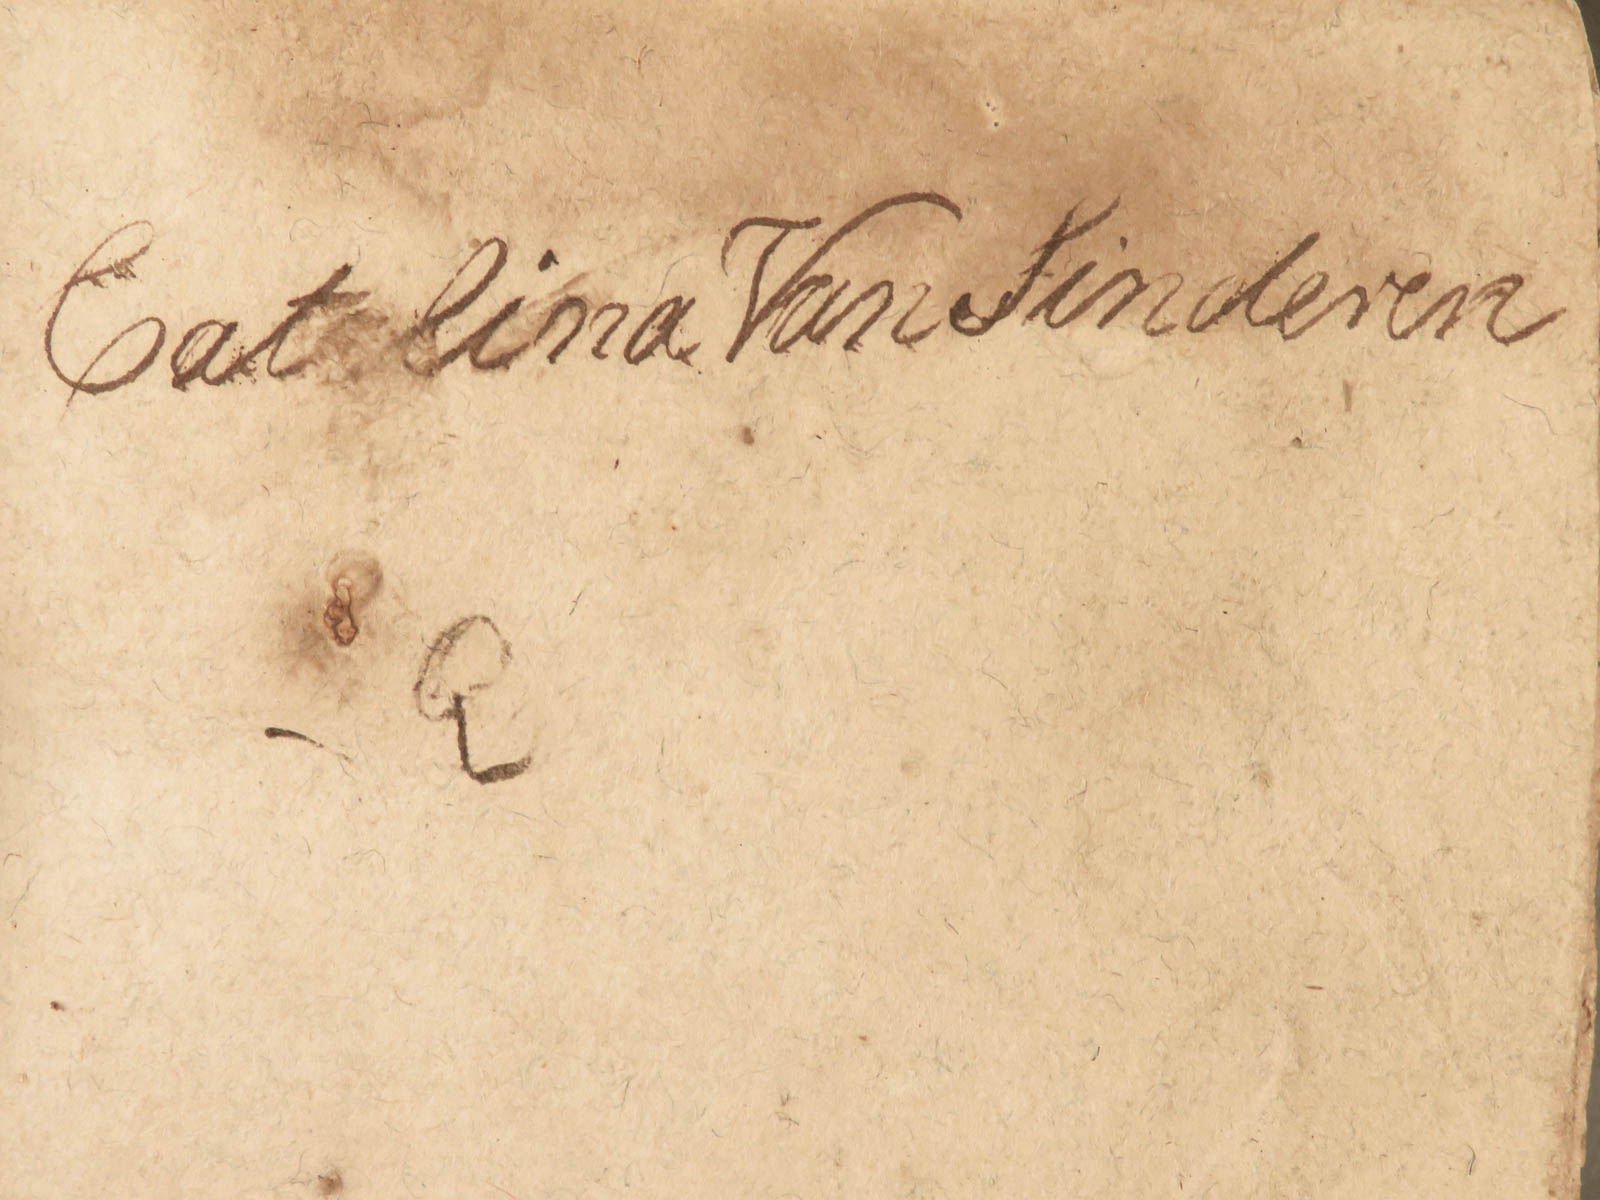 Cat lina Van Sinderen